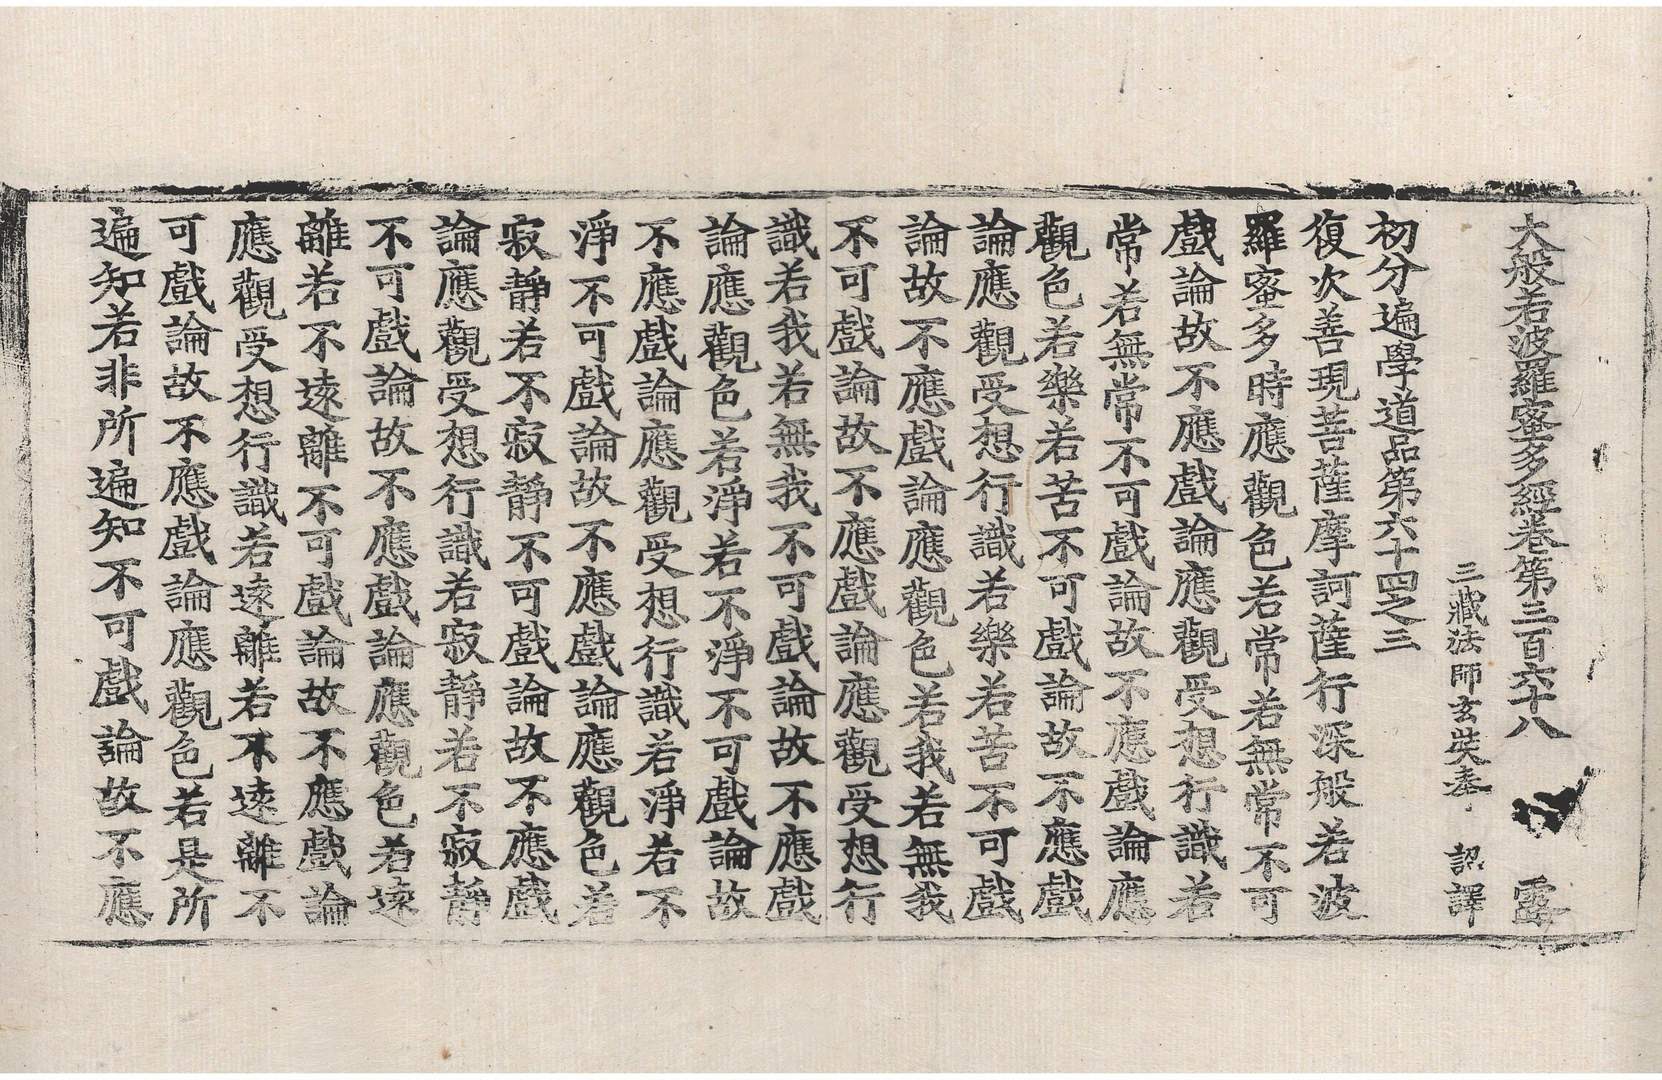 大般若波羅蜜多經卷第三百六十八 露
三藏法師玄奘奉 詔譯
初分遍學道品第六十四之三
復次善現菩薩摩訶薩行深般若波
羅蜜多時應觀色若常若無常不可
戲論故不應戲論應觀受想行識若
常若無常不可戲論故不應戲論應
觀色若樂若苦不可戲論故不應戲
論應觀受想行識若樂若苦不可戲
論故不應戲論應觀色若我若無我
不可戲論故不應戲論應觀受想行
識若我若無我不可戲論故不應戲
論應觀色若淨若不淨不可戲論故
不應戲論應觀受想行識若淨若不
淨不可戲論故不應戲論應觀色若
寂靜若不寂靜不可戲論故不應戲
論應觀受想行識若寂靜若不寂靜
不可戲論故不應戲論應觀色若遠
離若不遠離不可戲論故不應戲論
應觀受想行識若遠離若不遠離不
可戲論故不應戲論應觀色若是所
遍知若非所遍知不可戲論故不應